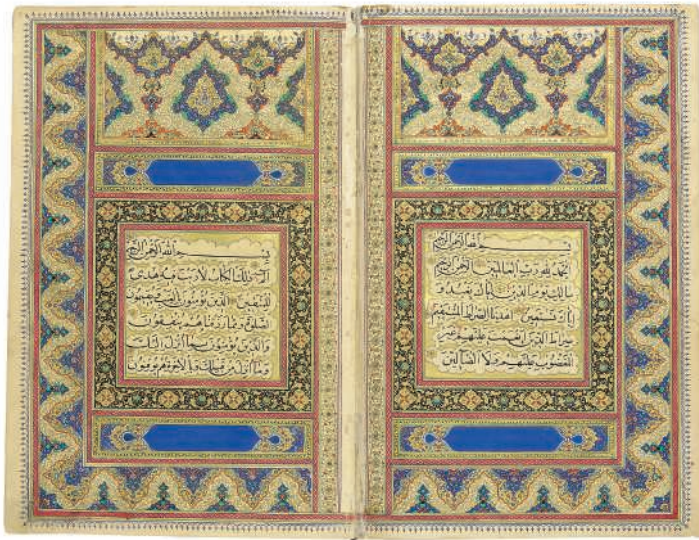 بسم الله الرحمن الرحيم
الحمد لله رب العالمين الرحمن الرحيم
مالك يوم الدين اياك نعبد و
اياك نستعين اهدنا الصراط المستقيم
صراط الذين انعمت عليهم غير
المغضوب عليهم ولا الضالين
بسم الله الرحمن الرحيم
الم ذلك الكتاب لا ريب فيه هدى
للمتقين الذين يؤمنون بالغيب ويقيمون
الصلوة ومما رزقناهم ينفقون
والذين يؤمنون بما انزل اليك
وما انزل من قبلك وبالاخرة هم يوقنون